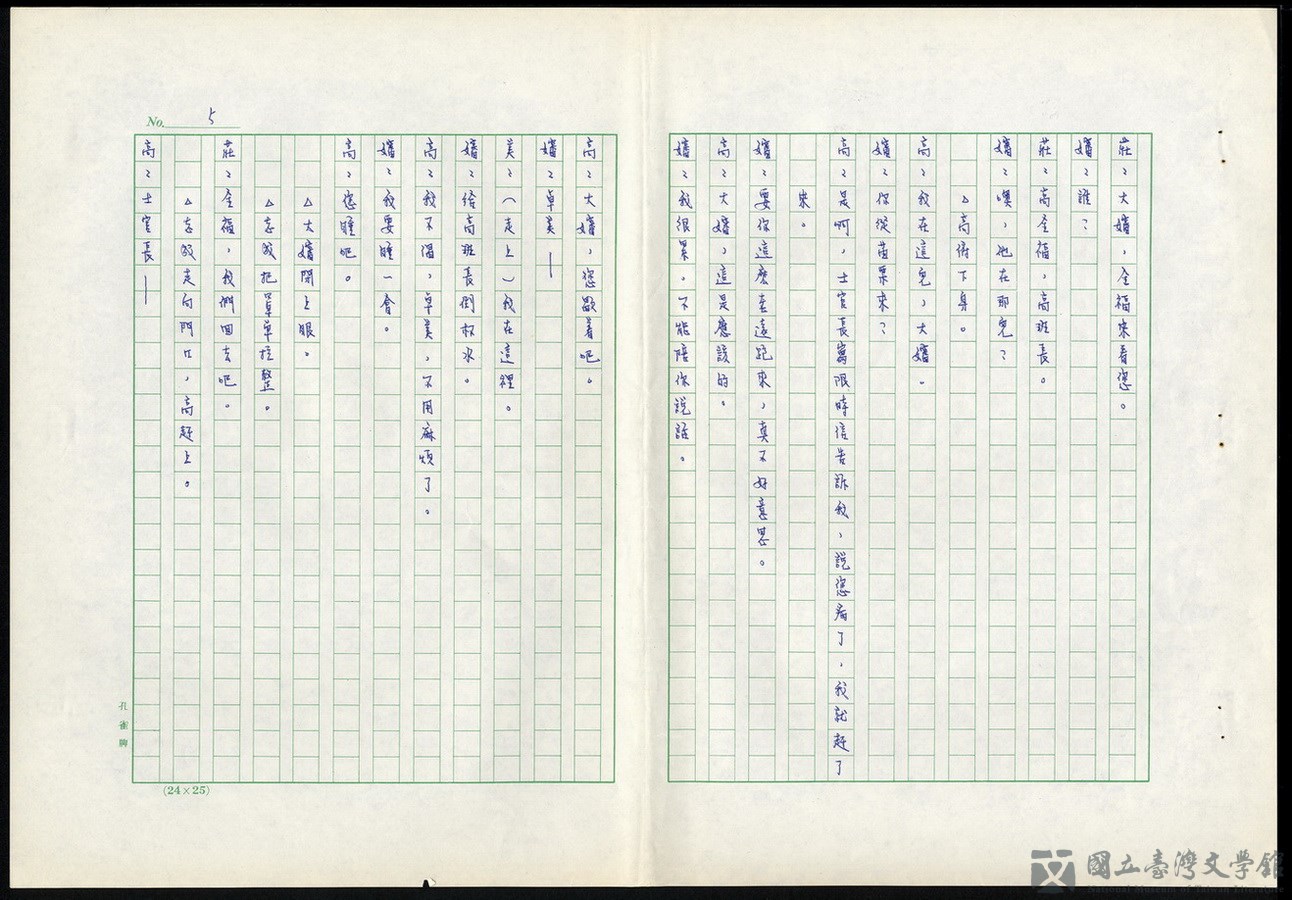 莊：大嬸，全福來看您。
嬸：誰？
莊：高全福，高班長。
嬸：噢，他在那兒？
△高俯下身。
高：我在這兒，大嬸。
嬸：你從苗栗來？
高：是啊，士官長寫限時信告訴我，說您病了，我就趕了
來。
嬸：要你這麼老遠跑來，真不好意思。
高：大嬸，這是應該的。
嬸：我很累。不能陪你說話。
No. 5
高：大嬸，您歇着吧。
嬸：卓美—
美：（走上）我在這裡。
嬸：給高班長倒杯水。
高：我不渴，卓美，不用麻煩了。
嬸：我要睡一會。
高：您睡吧。
△大嬸閉上眼。
△志成把罩單拉整。
莊：全福，我們回去吧。
△志成走向門口，高趕上。
高：士官長—
孔雀牌
(24×25)
國立臺灣文學館
National Museum of Taiwan Literature